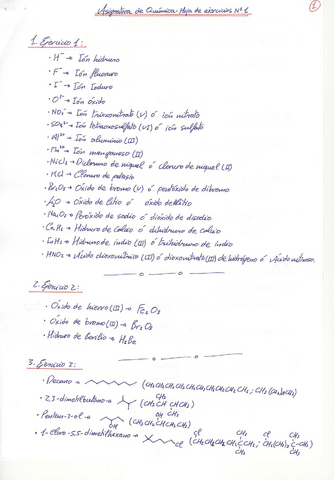 Asignatura de Química - Hoja de ejercicios Nº 1
1
1. Ejercicio 1:
· H⁻ → Ión hidruro
· F⁻ → Ión fluoruro
· I⁻ → Ión ioduro
· O²⁻ → Ión óxido
· NO₃⁻ → Ión trioxonitrato (V) ó ión nitrato
· SO₄²⁻ → Ión tetraoxosulfato (VI) ó ión sulfato
· Al³⁺ → Ión aluminio (III)
· Mn²⁺ → Ión manganeso (II)
· NiCl₂ → Dicloruro de niquel ó cloruro de niquel (II)
· KCl → Cloruro de potasio
· Br₂O₅ → Óxido de bromo (V) ó pentóxido de dibromo
· Li₂O → Óxido de litio ó óxido de dilitio
· Na₂O₂ → Peróxido de sodio ó dióxido de disodio
· CaH₂ → Hidruro de calcio ó dihidruro de calcio
· InH₃ → Hidruro de indio (III) ó trihidruro de indio
· HNO₂ → Ácido dioxonítrico (III) ó dioxonitrato (III) de hidrógeno ó Ácido nitroso.
2. Ejercicio 2:
· Óxido de hierro (III) → Fe₂O₃
· Óxido de bromo (III) → Br₂O₃
· Hidruro de berilio → H₂Be
3. Ejercicio 3:
· Decano →
· 2,3-dimetilbutano →
· Pentan-2-ol →
· 1-cloro-5,5-dimetilhexano →